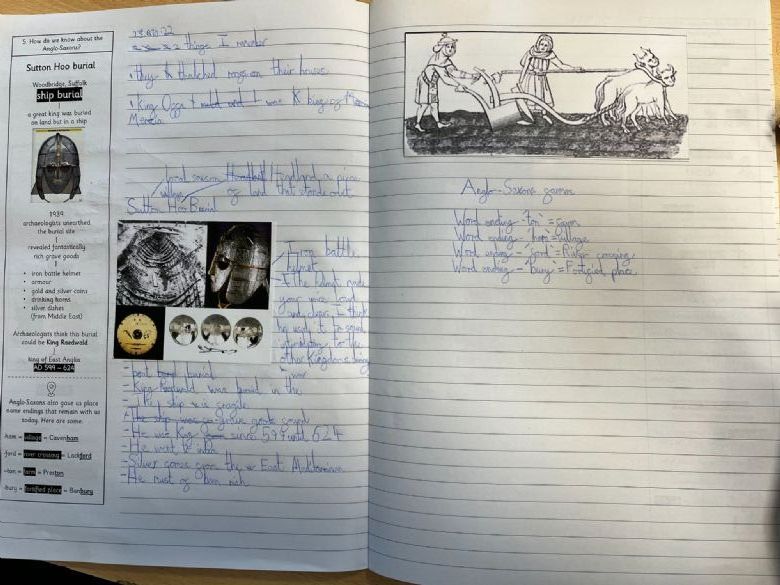 5. How do we know about the
Anglo-Saxons?
Sutton Hoo burial
Woodbridge, Suffolk
ship burial
a great king was buried
on land but in a ship
1939
archaeologists unearthed
the burial site
revealed fantastically
rich grave goods
• iron battle helmet
• armour
• gold and silver coins
• drinking horns
• silver dishes
(from Middle East)
Archaeologists think this burial
could be King Raedwald
king of East Anglia
AD 599 – 624
Anglo-Saxons also gave us place
name endings that remain with us
today. Here are some.
-ham = village = Cavenham
-ford = river crossing = Lackford
-ton = farm = Preston
-bury = fortified place = Banbury
2 things I
thatched on their houses
King Offa and was king of
local saxon Headland, a piece
village of land that stands out
Sutton Hoo Burial
Iron battle
helmet
- If the helmet made
your voice loud
and I think
he used it to sound
for the
other Kingdoms
war
- boat burial
- King was buried in the
- ship is fragile
- The ship grave goods
- He was King since 599 until 624
- He went to
- Silver comes from the East Mediterranean
- He must of been rich
Anglo-Saxons
Word ending -'ton' = farm
Word ending -'ham' = village
Word ending -'ford' = River crossing
Word ending -'bury' = Fortified place